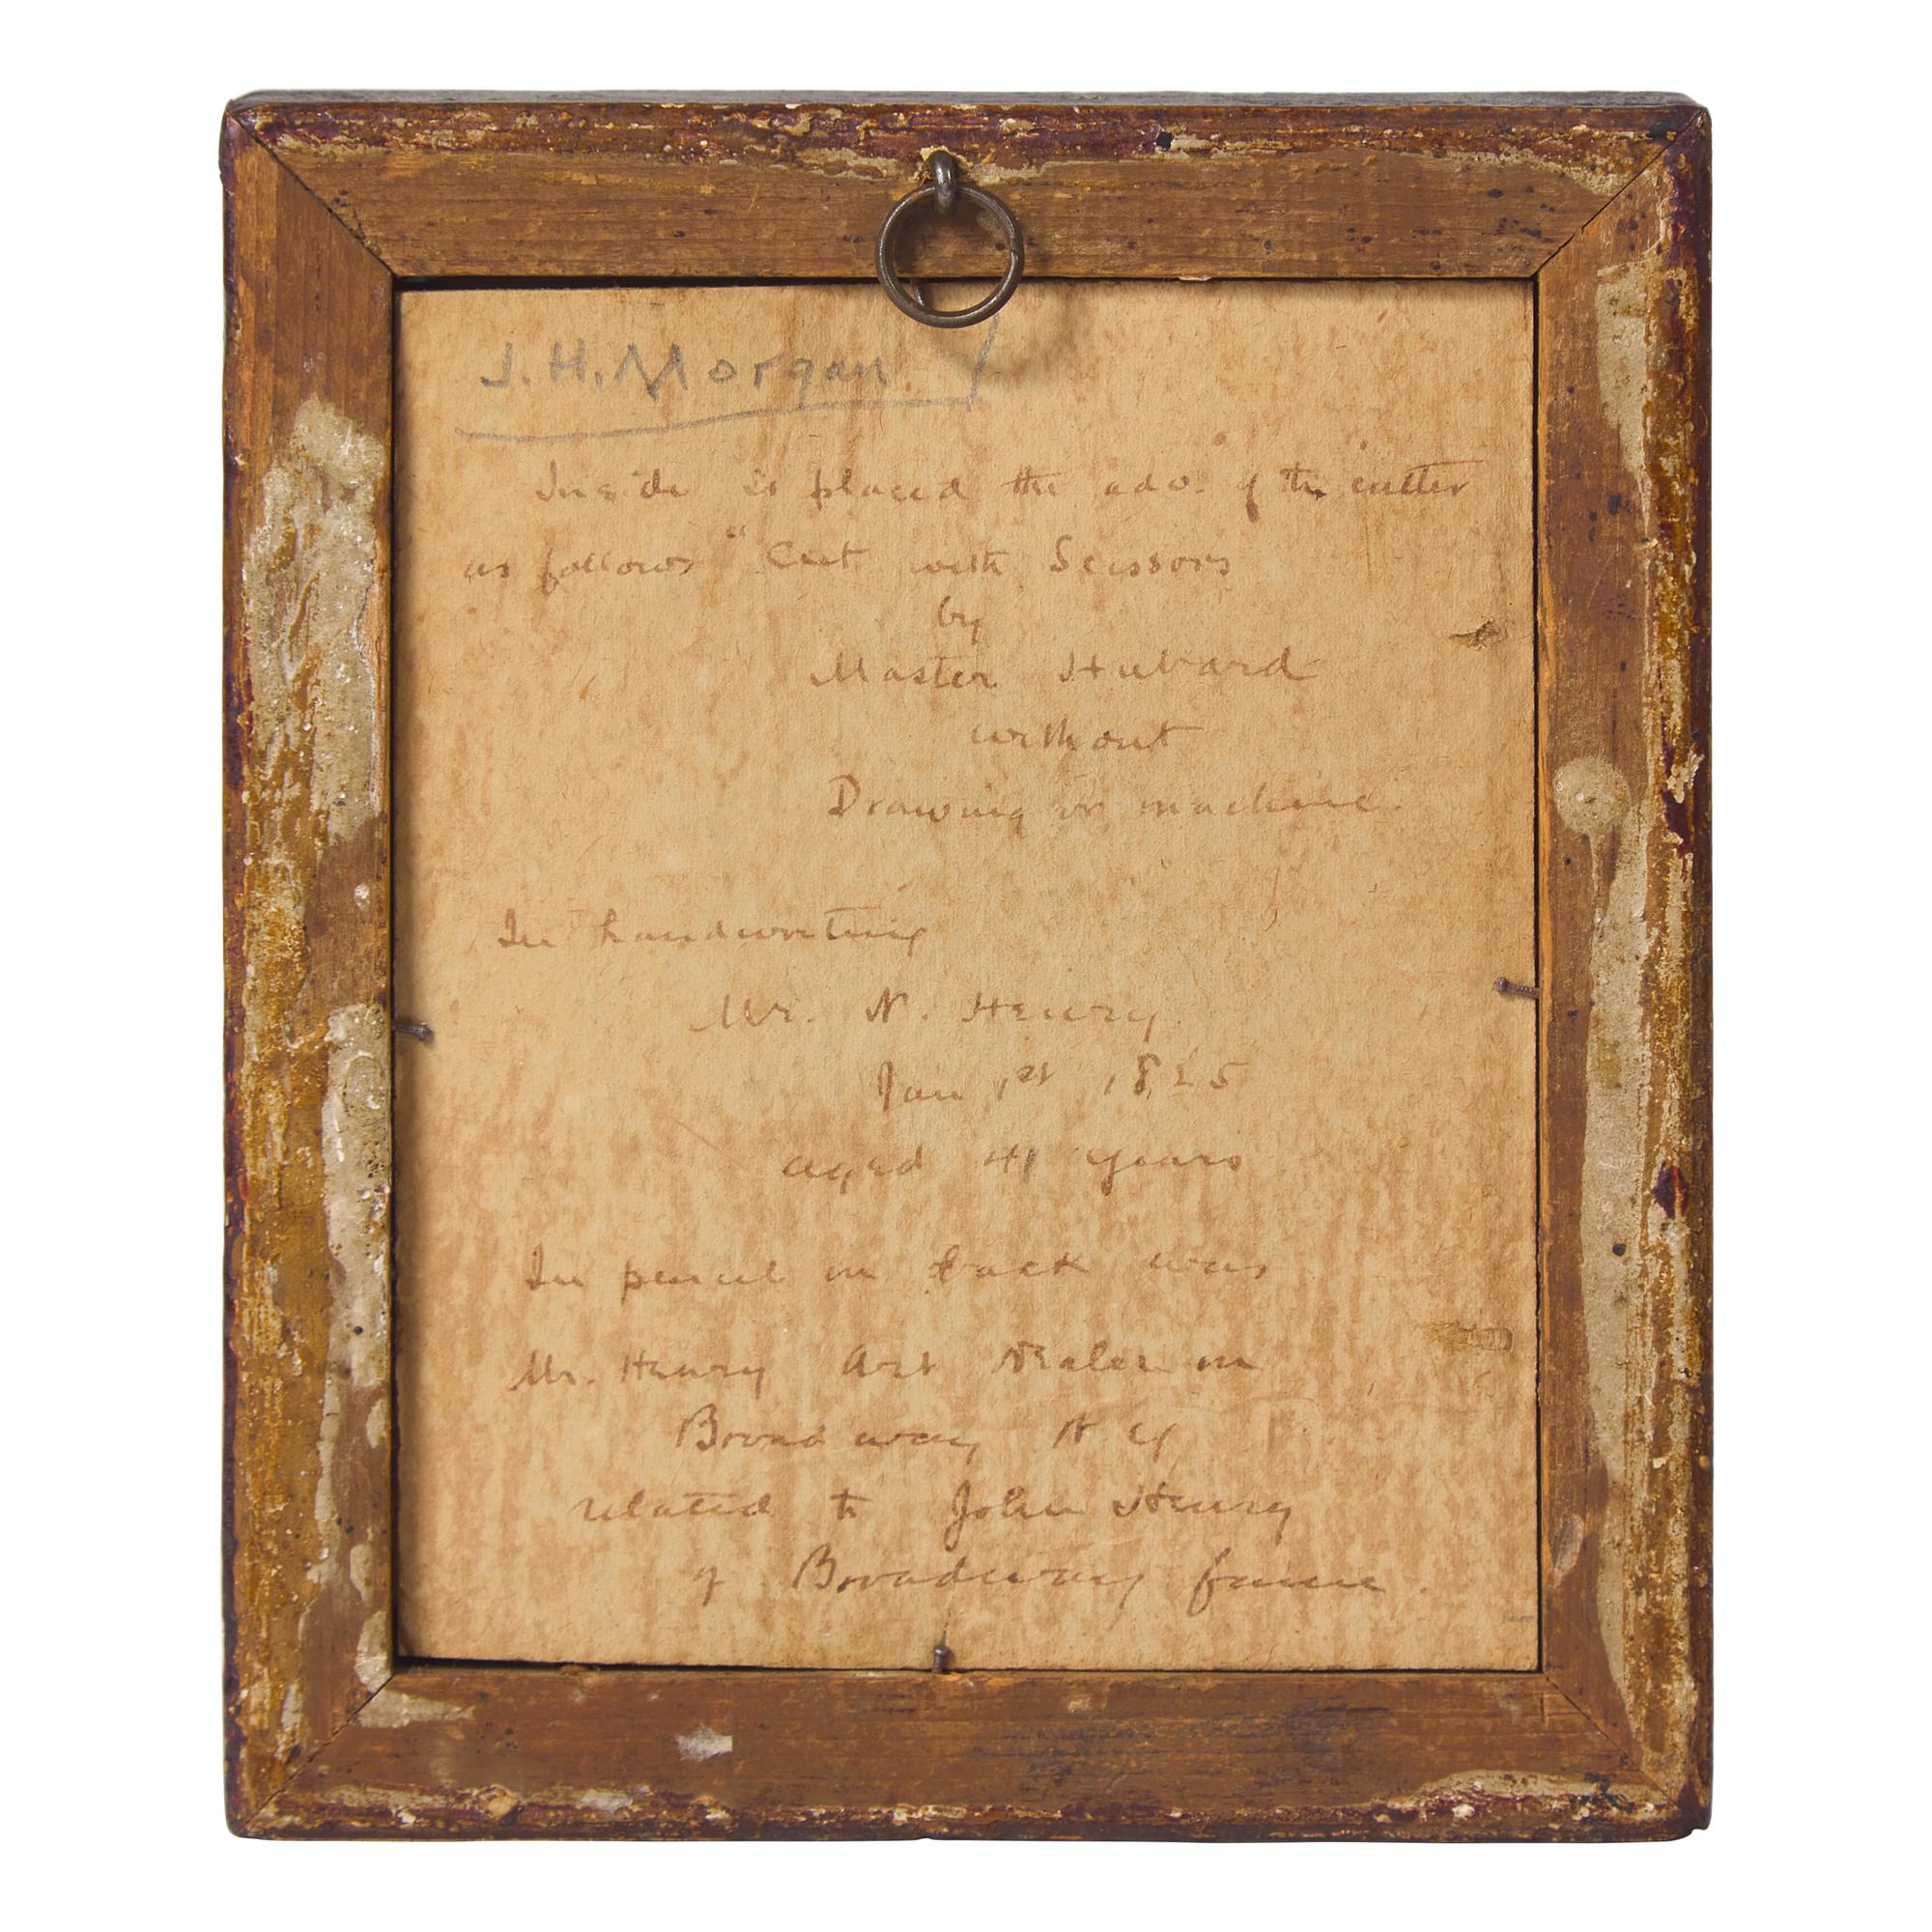 J. H. Morgan
Inside is placed the adv. of the cutter
as follows " Cut with Scissors
by
Master Hubard
without
Drawing or machine.
In handwriting
Mr. N. Henry.
Jan 1st 1825
aged 41 years
In pencil on back was
Mr. Henry Art Dealer on
Broadway N. Y
related to John Henry
of Broadway fame.